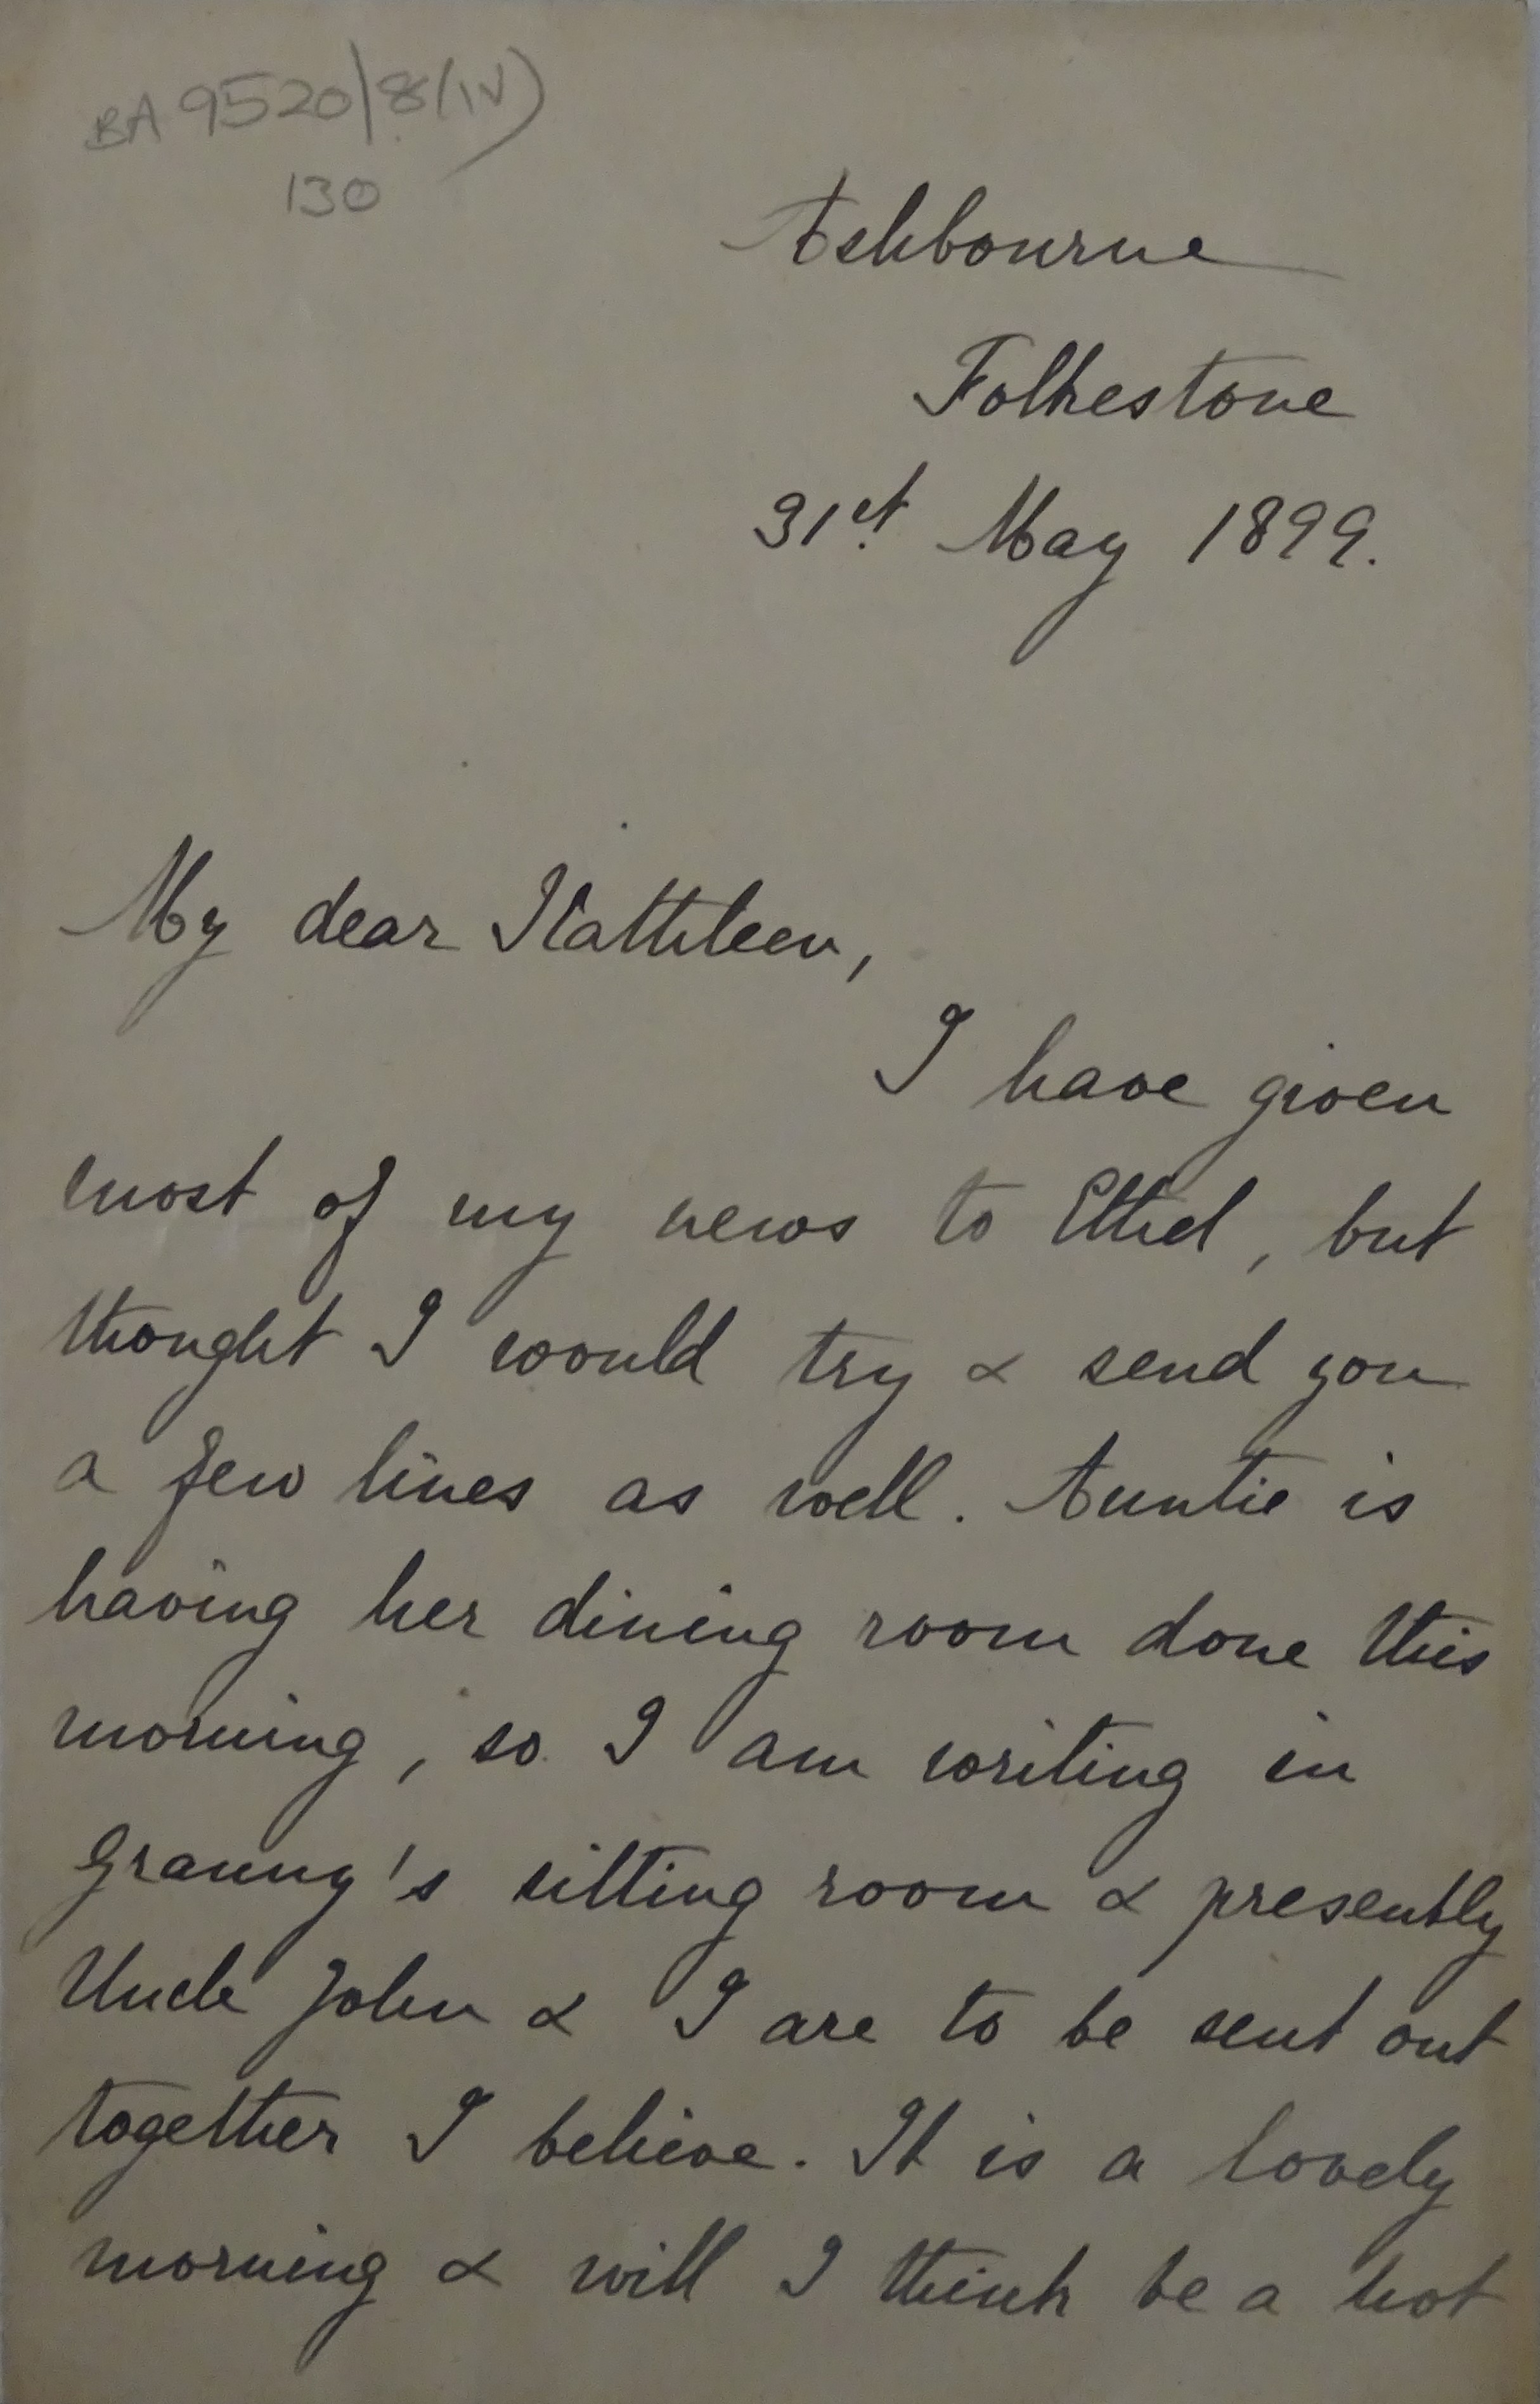 BA 9520/8(IV)
130
Ashbourne
Folkestone
31st May 1899.
My dear Kathleen,
I have given
most of my news to Ethel, but
thought I would try & send you
a few lines as well. Auntie is
having her dining room done this
morning, so I am writing in
Granny's sitting room & presently
Uncle John & I are to be sent out
together I believe. It is a lovely
morning & will I think be a hot